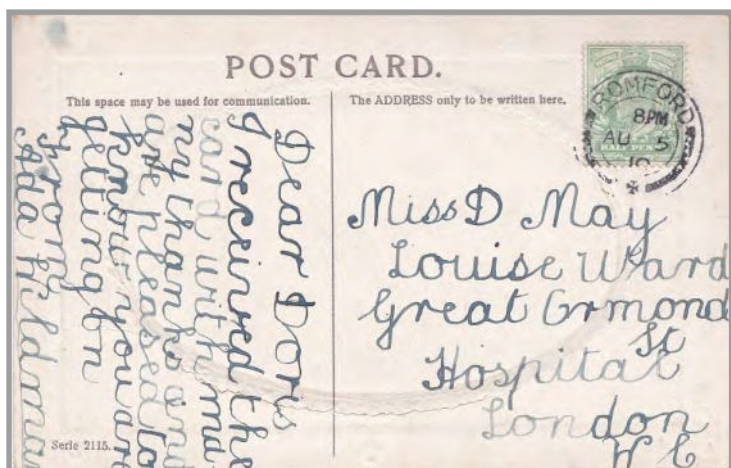 POST CARD.
This space may be used for communication.
The ADDRESS only to be written here.
ROMFORD
8PM
AU 5
10
HALF PENNY
Dear Doris
I received the
card with ma
ny thanks and
are pleased to
know you are
getting on
by
from
Ada
Miss D May
Louise Ward
Great Ormond
St
Hospital
London
W C
Serie 2115.